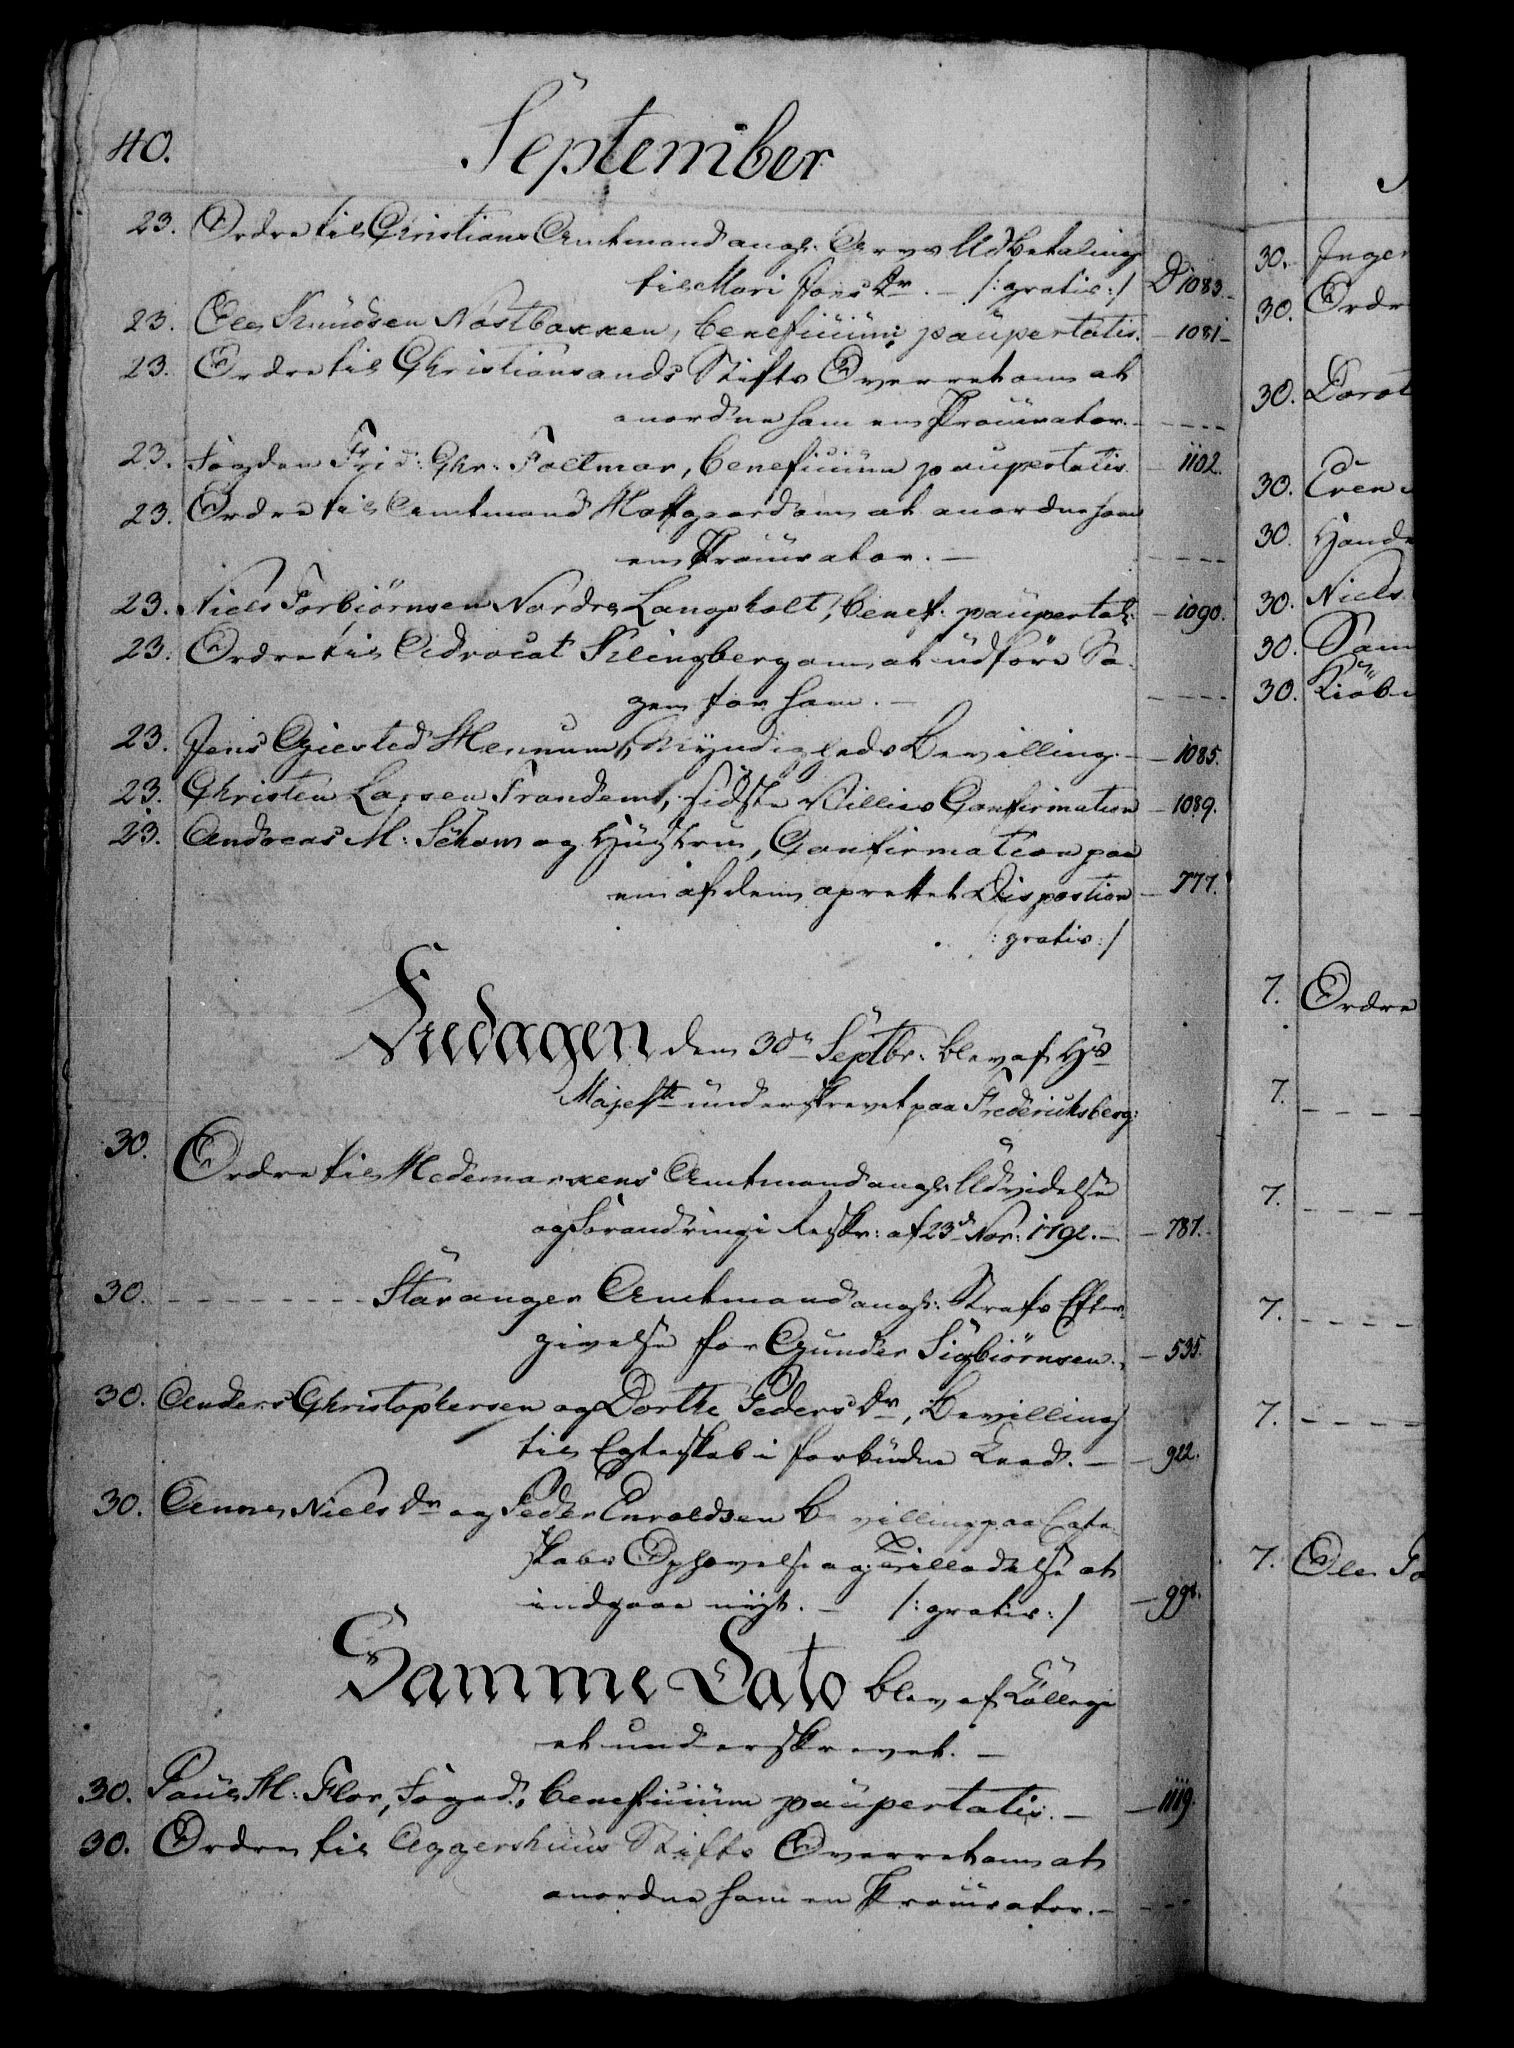 40. September
23. Ordre til Christians Amtmand angl. Arvs Udbetaling
til Mari Jens Dr. — /: gratis :/ D 1083.
23. Ole Knudsen Nostbakken, beneficium paupertatis. — 1081.
23. Ordre til Christiansands Stifts Overret om at
anordne ham en Procurator. - - - -
23. Fogden Frid: Chr: Foltmar, beneficium paupertatis. — 1102.
23. Ordre til Amtmand Hofgaard om at anordne ham
en Procurator. — - - - -
23. Niels Torbiørnsen Nordre Langholt, benef. paupertat: — 1090.
23. Ordre til Advocat Klingberg om at udføre Sa-
gen for ham. — - - - -
23. Jens Giested Mennum, Myndigheds Bevilling. — 1085.
23. Christen Larsen Trandem, sidste Villies Confirmation — 1089.
23. Andreas M: Schow og Hustrue, Confirmation paa
en af dem oprettet Dispostion — 777.
/: gratis :/
Fredagen den 30te Septbr. blev af Hs
Majestt underskrevet paa Fredericksberg:
30. Ordre til Hedemarkens Amtmand angl. Udvidelse
og Forandring i Reskr: af 23d Nov: 1792. — 787.
30. - - - - - - - - Stavanger Amtmand angl: Strafs Efter-
givelse for Gunder Sigbiørnsen. — 535.
30. Anders Christophersen og Dorthe Peders Dr, Bevilling
til Egteskab i forbudne Leed. — 922.
30. Anne Niels Dr og Peder Enroldsen Bevilling paa Egte-
skabs Ophævelse og Tilladelse at
indgaae nyt. — /: gratis :/ — 998.
Samme Dato blev af Collegi
et underskrevet. —
30. Paul M: Flor, Foged, beneficium paupertatis. — 1119.
30. Ordre til Aggershuus Stifts Overret om at
anordne ham en Procurator. — - - -
30. Inger
30. Ordr
30. Dorot
30. Even
30. Hande
30. Niels
30. Sam
30. Kiøb
7. Ordre
7. - - - -
7. - - - -
7. - - - -
7. - - - -
7. Ole To